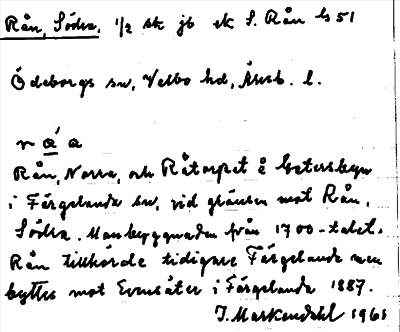 Rån, Södra, 1/2 sk jb ek S. Rån ls 51
Ödeborgs sn, Valbo hd, Älvsb. l.
r ǻ a
Rån, Norra, och Råtorpet å Gatersbyn
i Färgelanda sn, vid gränsen mot Rån,
Södra. Manbyggnaden från 1700-talet.
Rån tillhörde tidigare Färgelanda men
byttes mot Evensäter i Färgelanda 1887.
I. Markendahl 1961